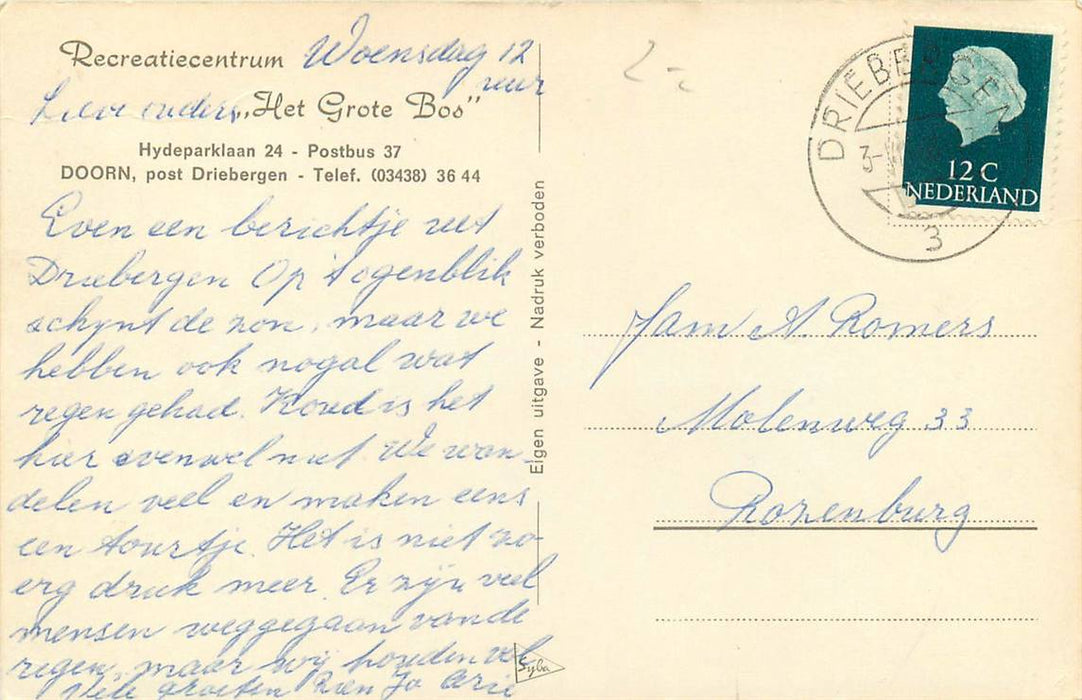 Recreatiecentrum Woensdag 12
uur
Lieve ouders „Het Grote Bos”
Hydeparklaan 24 - Postbus 37
DOORN, post Driebergen - Telef. (03438) 36 44
Even een berichtje uit
Driebergen Op 't ogenblik
schynt de zon, maar we
hebben ook nogal wat
regen gehad. Koud is het
hier evenwel niet. We wan-
delen veel en maken eens
een tourtje. Het is niet zo
erg druk meer. Er zijn veel
mensen weggegaan vande
regen, maar wij houden vol
Vele groeten Rien Jo Arie
Eigen uitgave - Nadruk verboden
Syba
2-
DRIEBERGEN
3
12 C
NEDERLAND
3
Fam A. Romers
Molenweg 33
Rozenburg